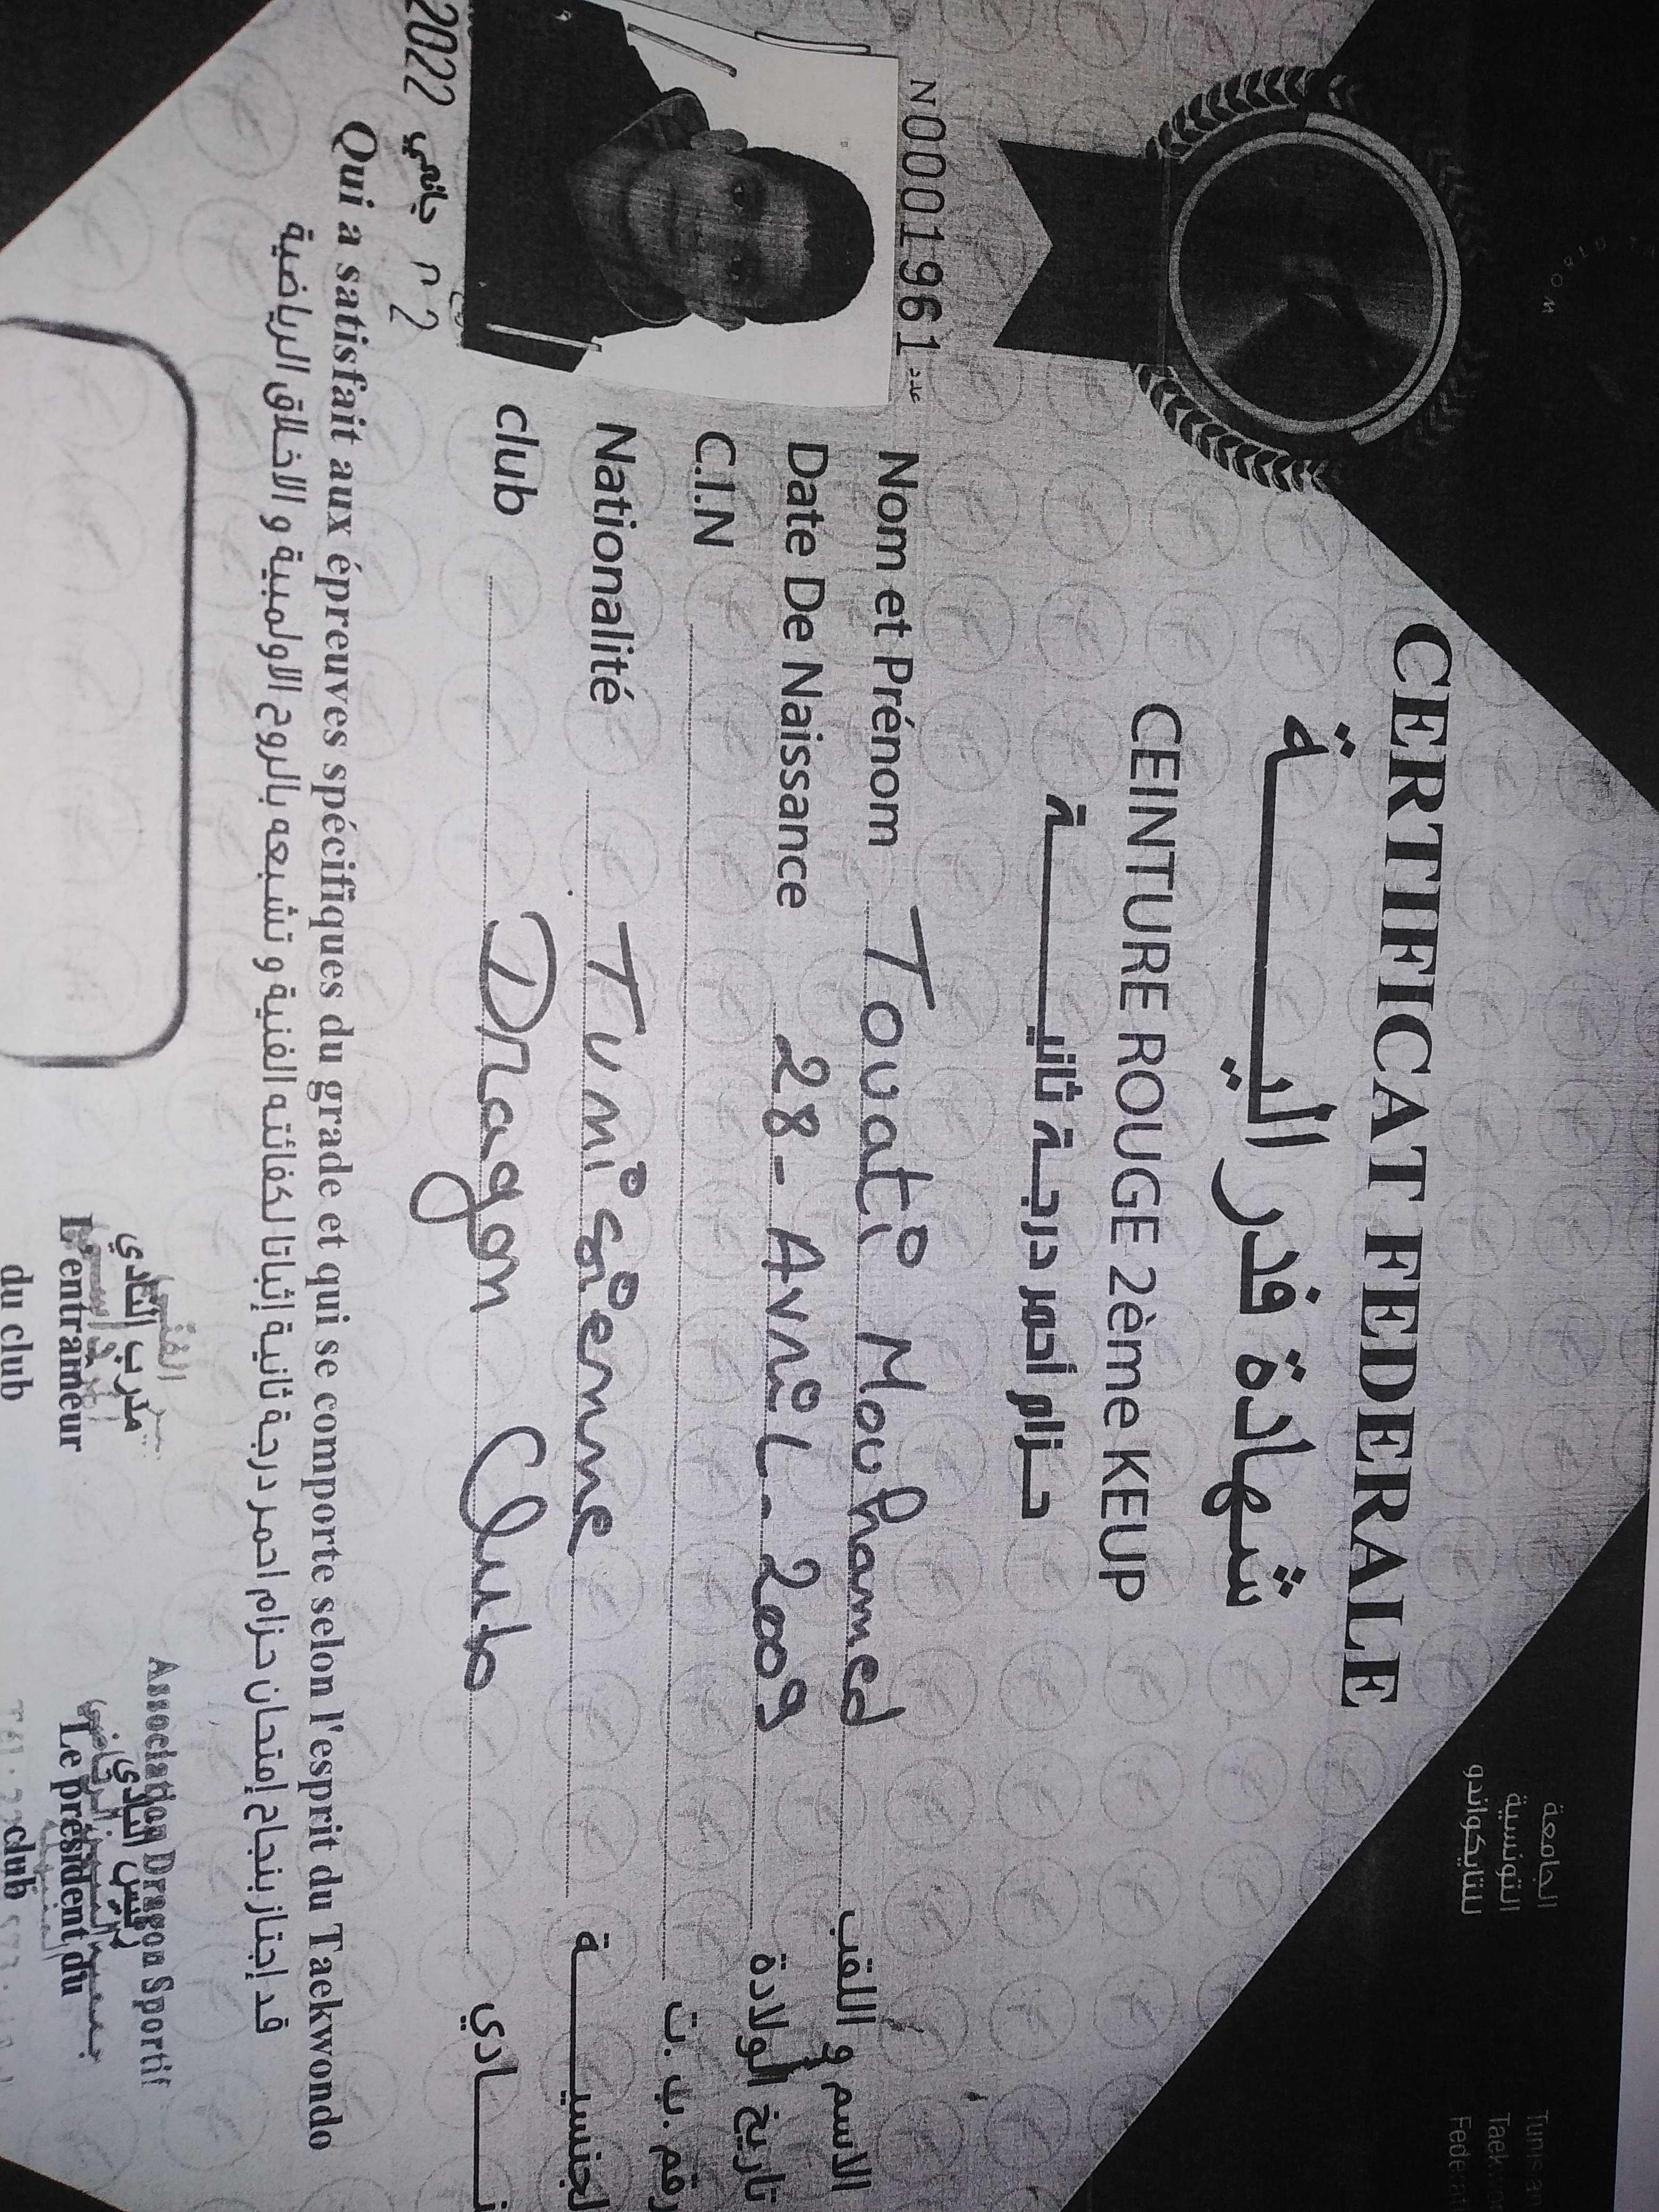 الجامعة
التونسية
للتايكواندو
Taek
Federat
CERTIFICAT FEDERALE
شهادة فدرالية
CEINTURE ROUGE 2ème KEUP
حزام أحمر درجة ثانية
N0001961 عدد
Nom et Prénom Touati Mouhamed الاسم و اللقب
Date De Naissance 28-Avril-2009 تاريخ الولادة
C.I.N رقم ب.ت
Nationalité Tunisienne الجنسية
club Dragon Club نادي
2 جانفي 2022
Qui a satisfait aux épreuves spécifiques du grade et qui se comporte selon l'esprit du Taekwondo
قد إجتاز بنجاح إمتحان حزام احمر درجة ثانية إثباتا لكفائته الفنية و تشبعه بالروح الاولمبية و الاخلاق الرياضية
Association Dragon Sportif
مدرب النادي
رئيس النادي
L'entraineur
du club
Le président du
club